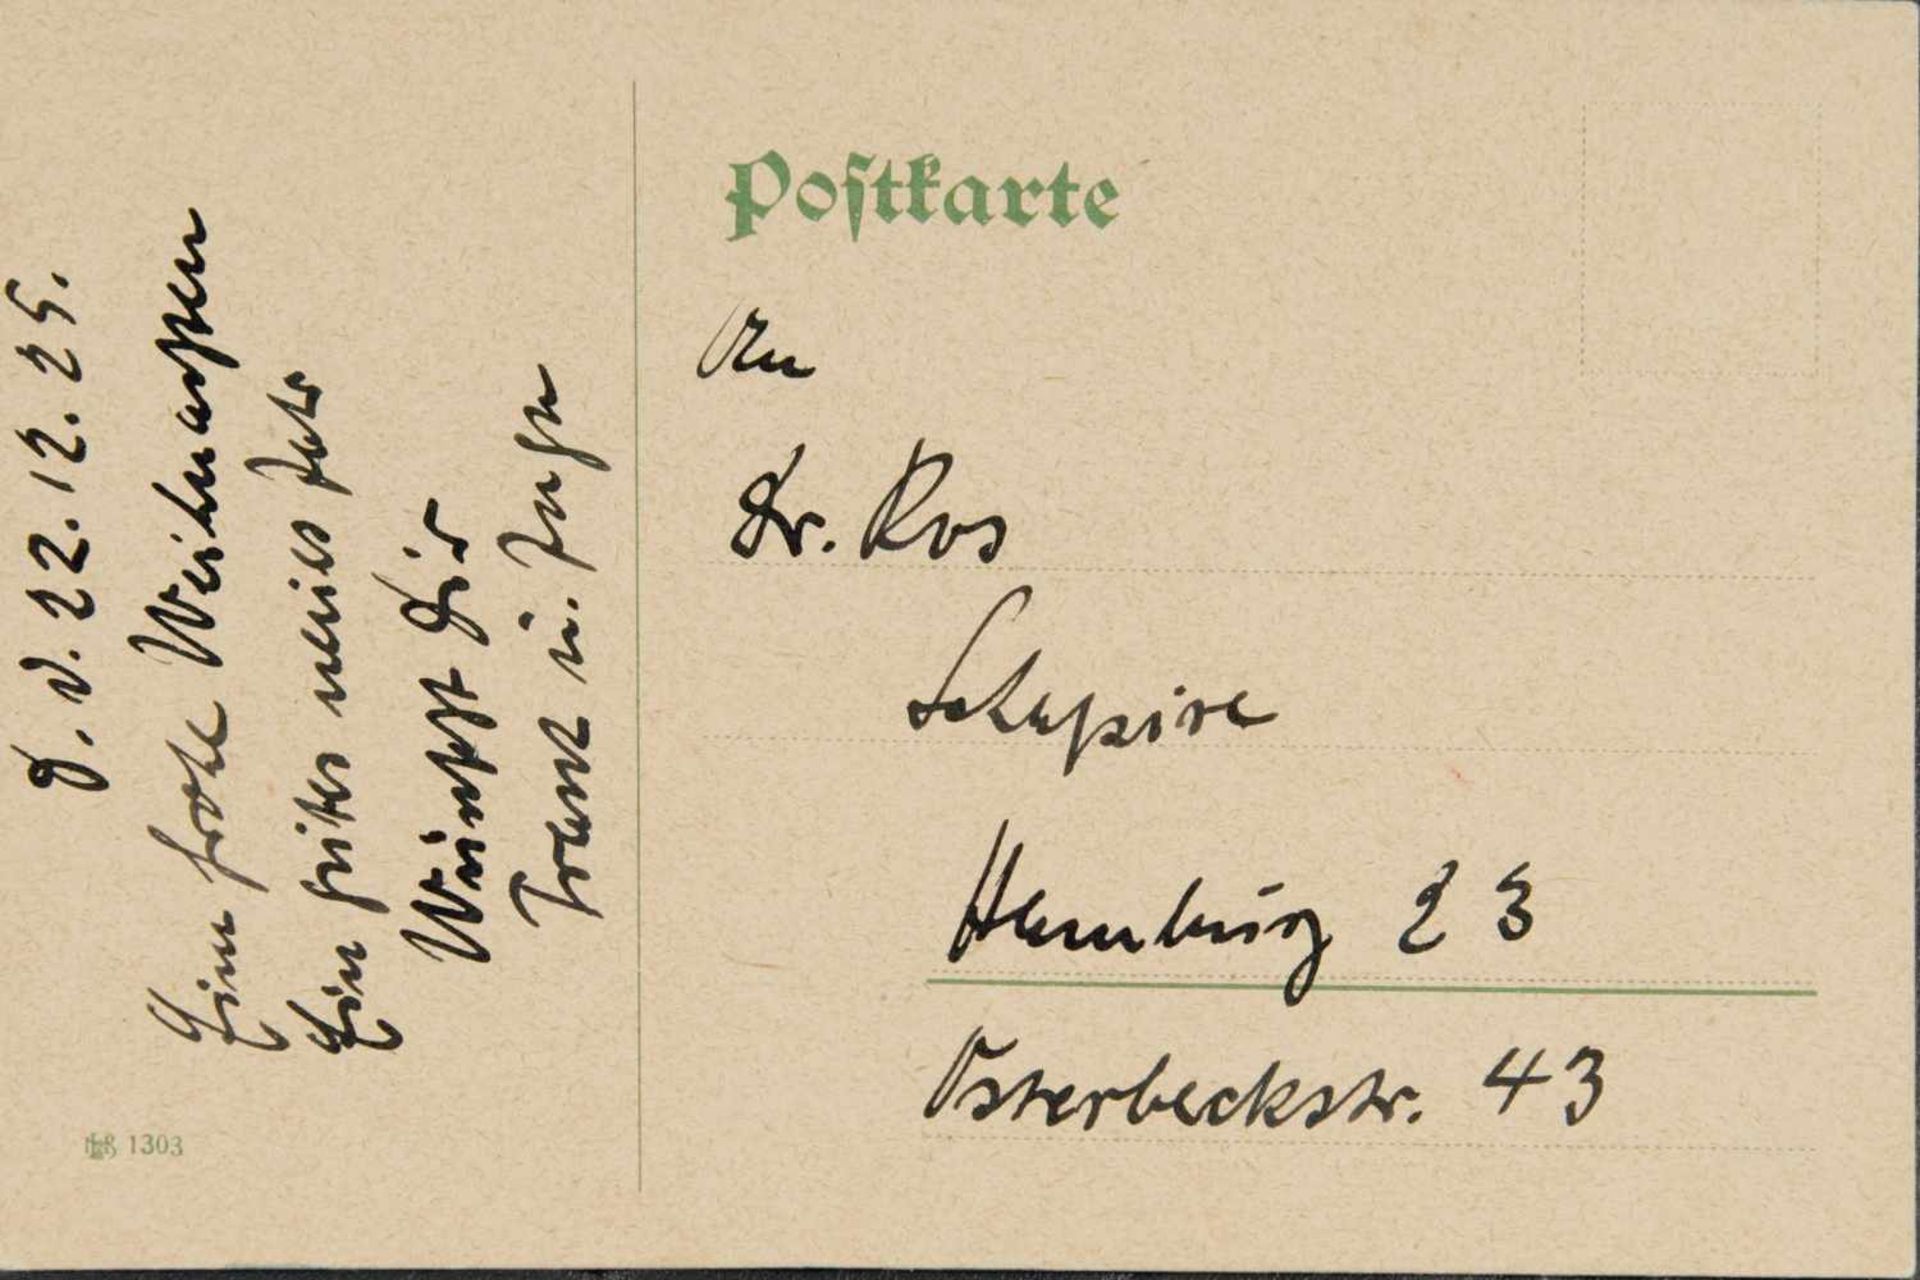 D. d. 22.12.25.
Eine frohe Weihnachten
Ein gutes neues Jahr
Wünscht Dir
Franz u. Inge
1303
Postkarte
An
Dr. Ros
Schapire
Hamburg 23
Osterbeckstr. 43